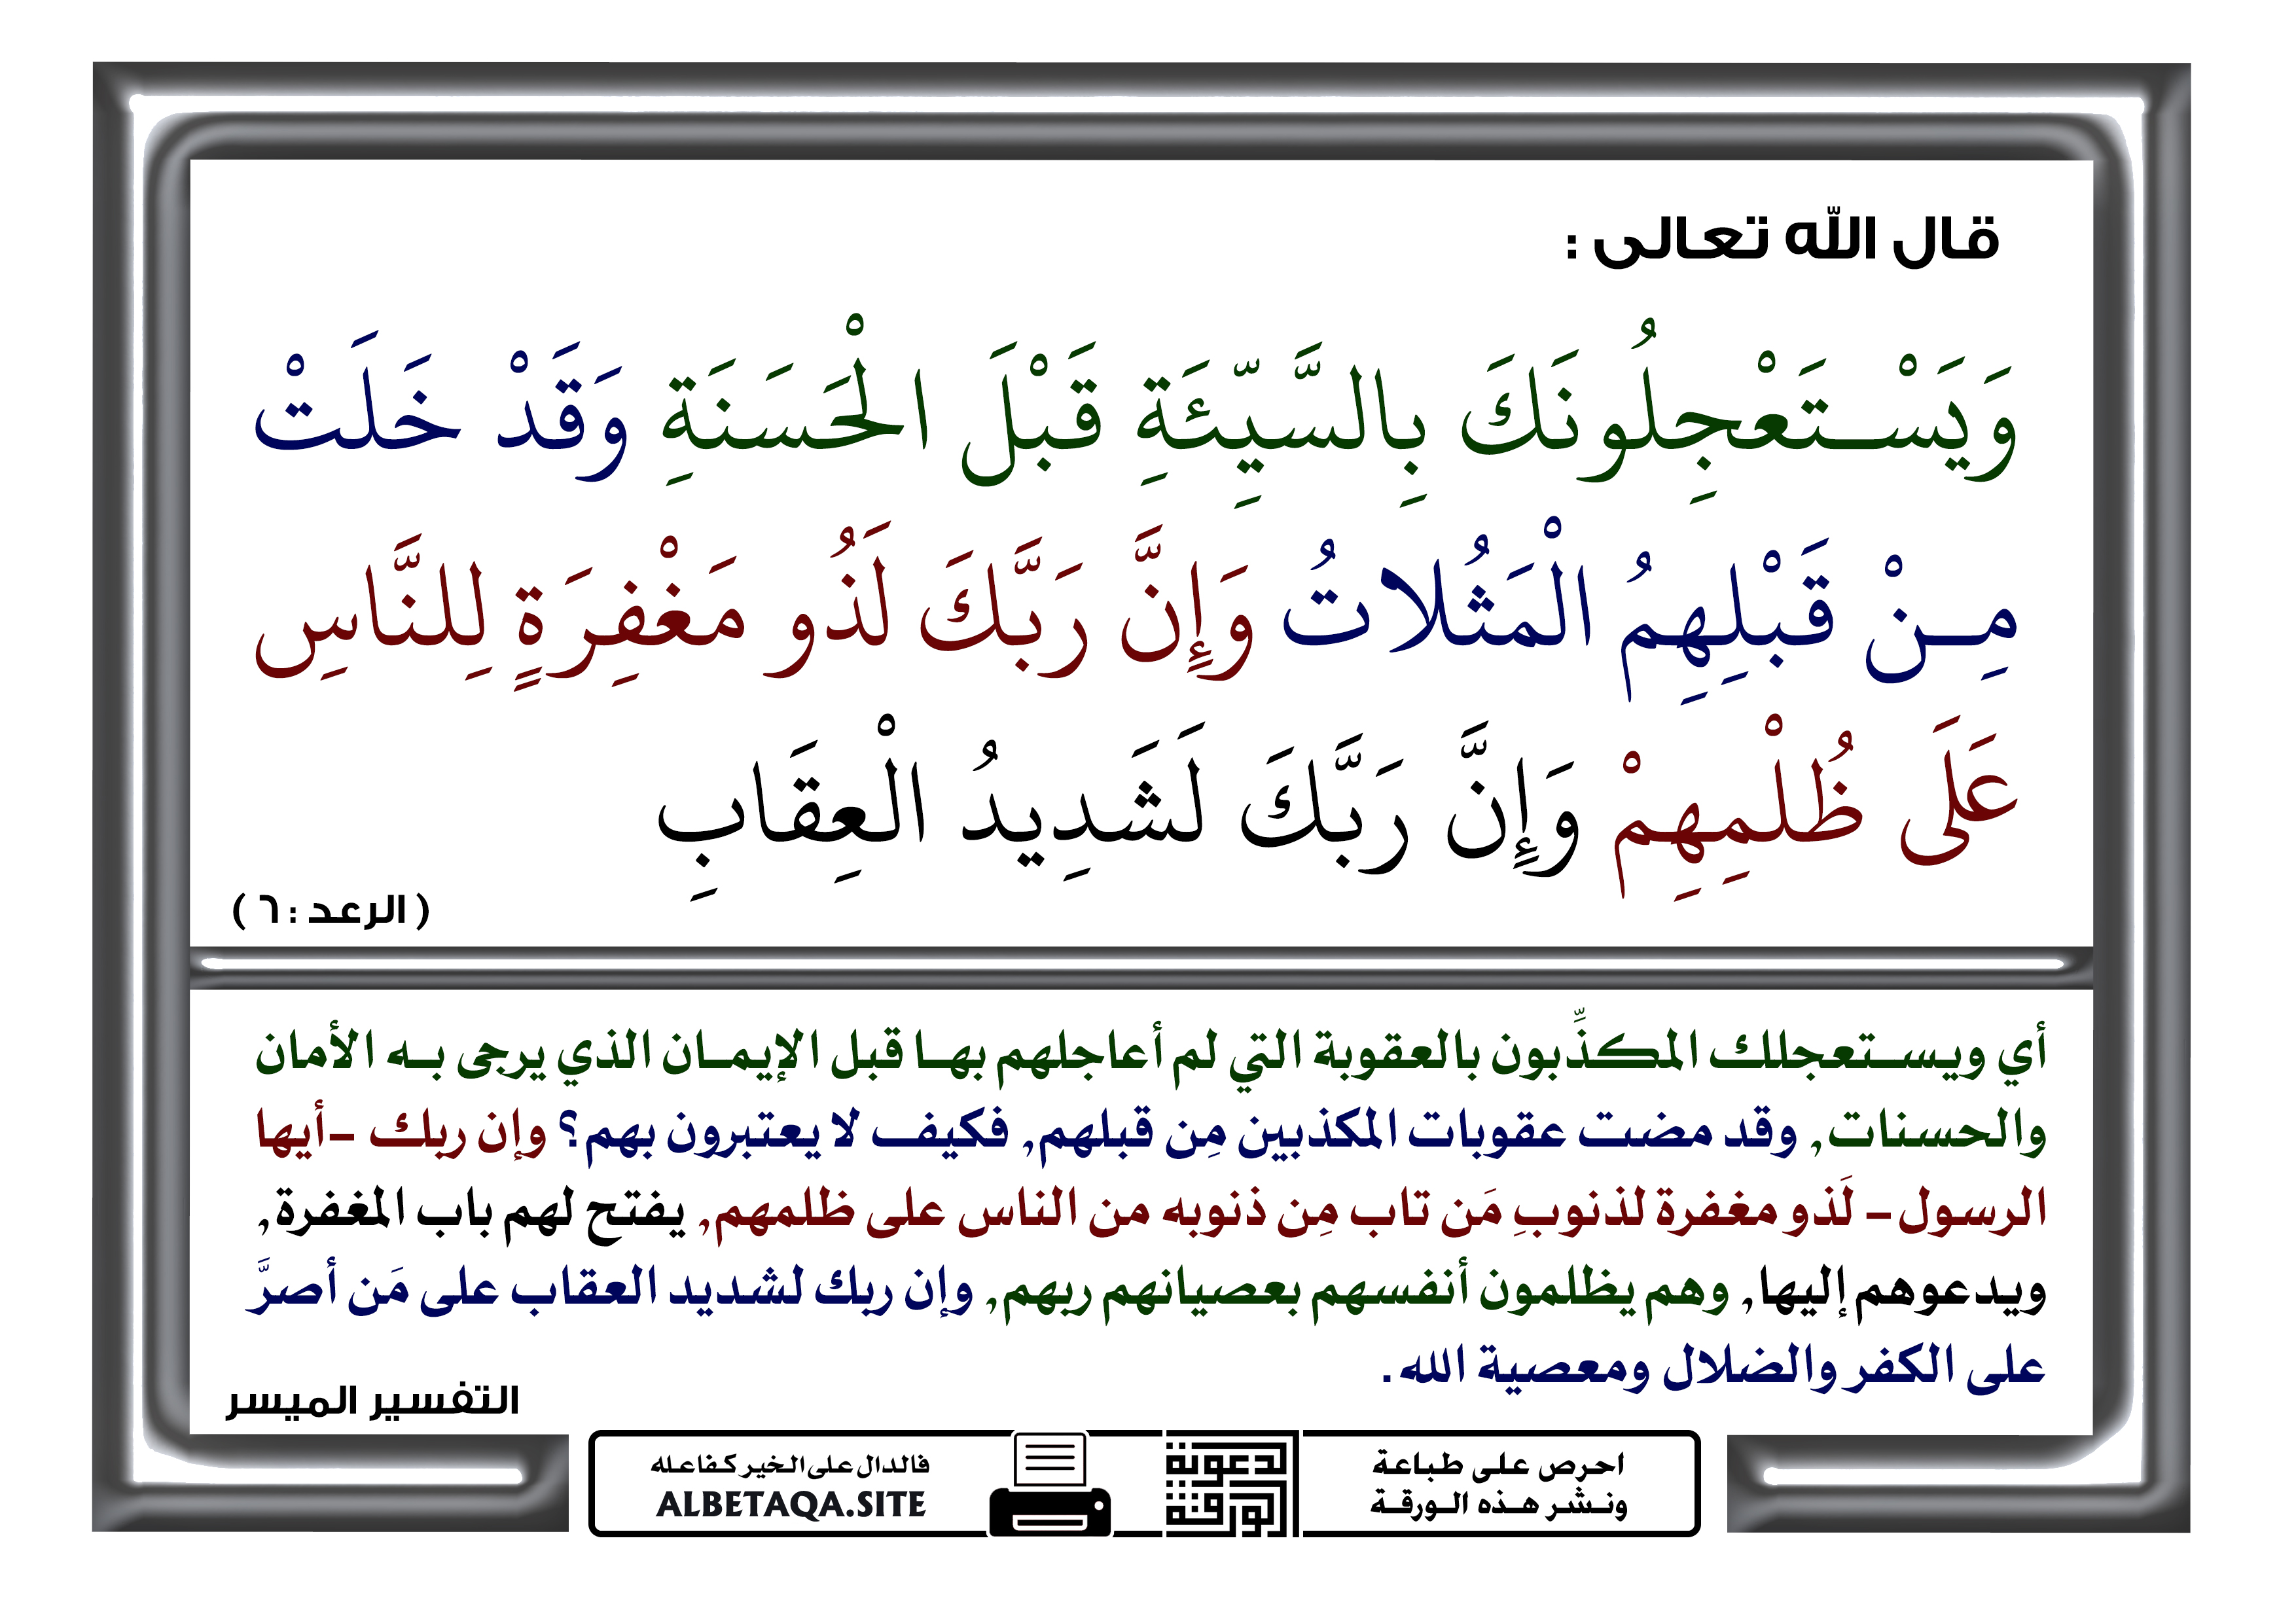 قال الله تعالى :
وَيَسْـتَعْجِلُونَكَ بِالسَّيِّئَةِ قَبْلَ الْحَسَنَةِ وَقَدْ خَلَتْ
مِـنْ قَبْلِهِمُ الْمَثُلاتُ وَإِنَّ رَبَّكَ لَذُو مَغْفِرَةٍ لِلنَّاسِ
عَلَى ظُلْمِهِمْ وَإِنَّ رَبَّكَ لَشَدِيدُ الْعِقَابِ
( الرعد : ٦ )
أي ويستعجلك المكذِّبون بالعقوبة التي لم أعاجلهم بها قبل الإيمان الذي يرجى به الأمان
والحسنات, وقد مضت عقوبات المكذبين مِن قبلهم, فكيف لا يعتبرون بهم؟ وإن ربك -أيها
الرسول- لَذو مغفرة لذنوبِ مَن تاب مِن ذنوبه من الناس على ظلمهم, يفتح لهم باب المغفرة,
ويدعوهم إليها, وهم يظلمون أنفسهم بعصيانهم ربهم, وإن ربك لشديد العقاب على مَن أصرَّ
على الكفر والضلال ومعصية الله.
التفسير الميسر
احرص على طباعة
ونشر هذه الورقة
الدعوية
الورقة
فالدال على الخير كفاعله
ALBETAQA.SITE